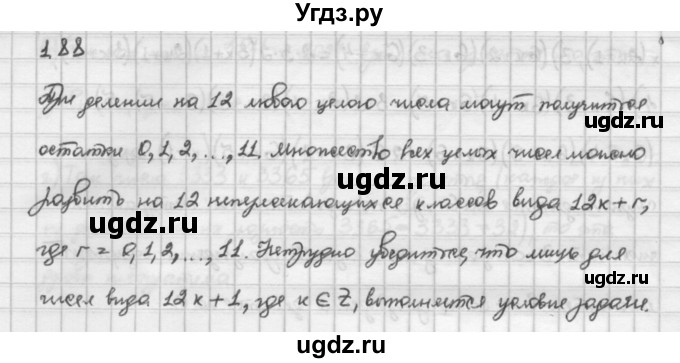 Угдз.ру
1.88
При делении на 12 любого целого числа могут получиться
остатки 0, 1, 2, ..., 11. Множество всех целых чисел можно
разбить на 12 непересекающихся классов вида 12к + r,
где r = 0, 1, 2, ..., 11. Нетрудно убедиться, что лишь для
чисел вида 12к + 1, где к ∈ Z, выполняется условие задачи.
ugdz.ru ugdz.ru
ugdz.ru ugdz.ru
ugdz.ru ugdz.ru
Угдз.ру